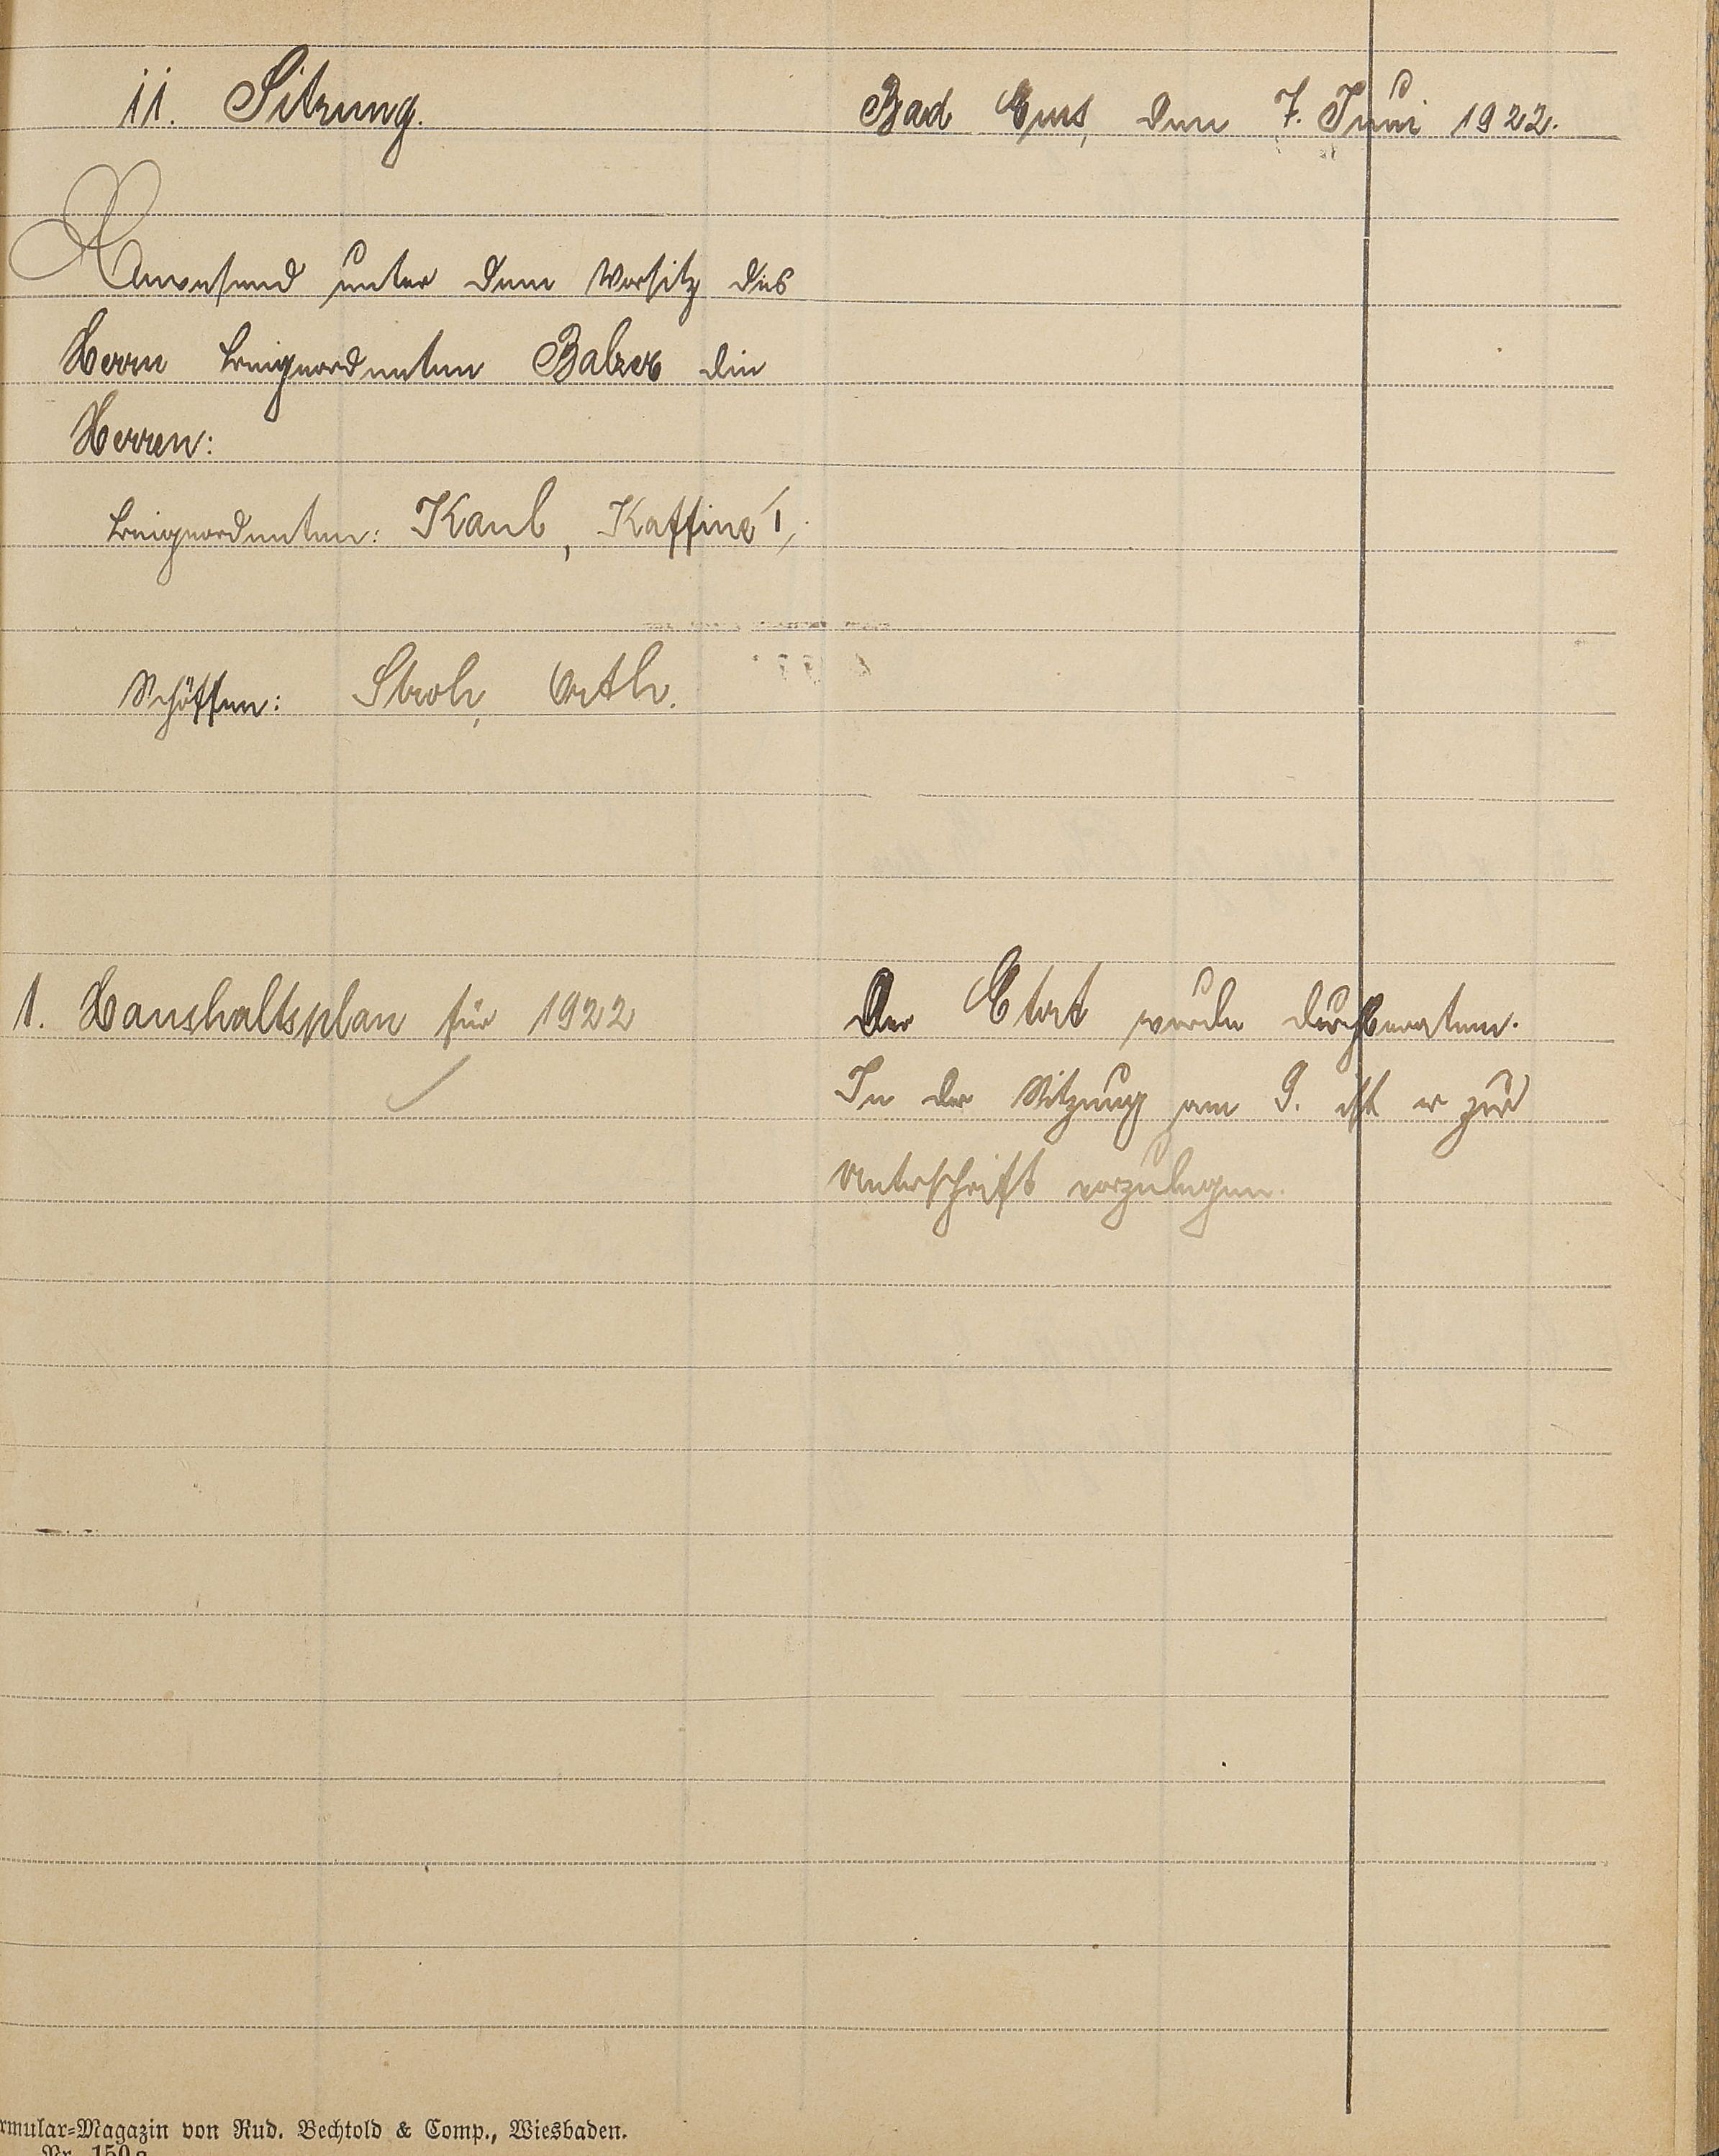 11. Sitzung.
Bad Ems, den 7. Juni 1922.
Anwesend unter dem Vorsitz des
Herrn Beigeordneten Balzer die
Herren:
Beigeordneten: Kaul, Kaffine
Schöffen: Stroh, Orth.
1. Haushaltsplan für 1922
Der Etat wurde durchberaten.
In der Sitzung am 9. ist er zur
Unterschrift vorzulegen.
rmular-Magazin von Rud. Bechtold & Comp., Wiesbaden.
Nr. 150a